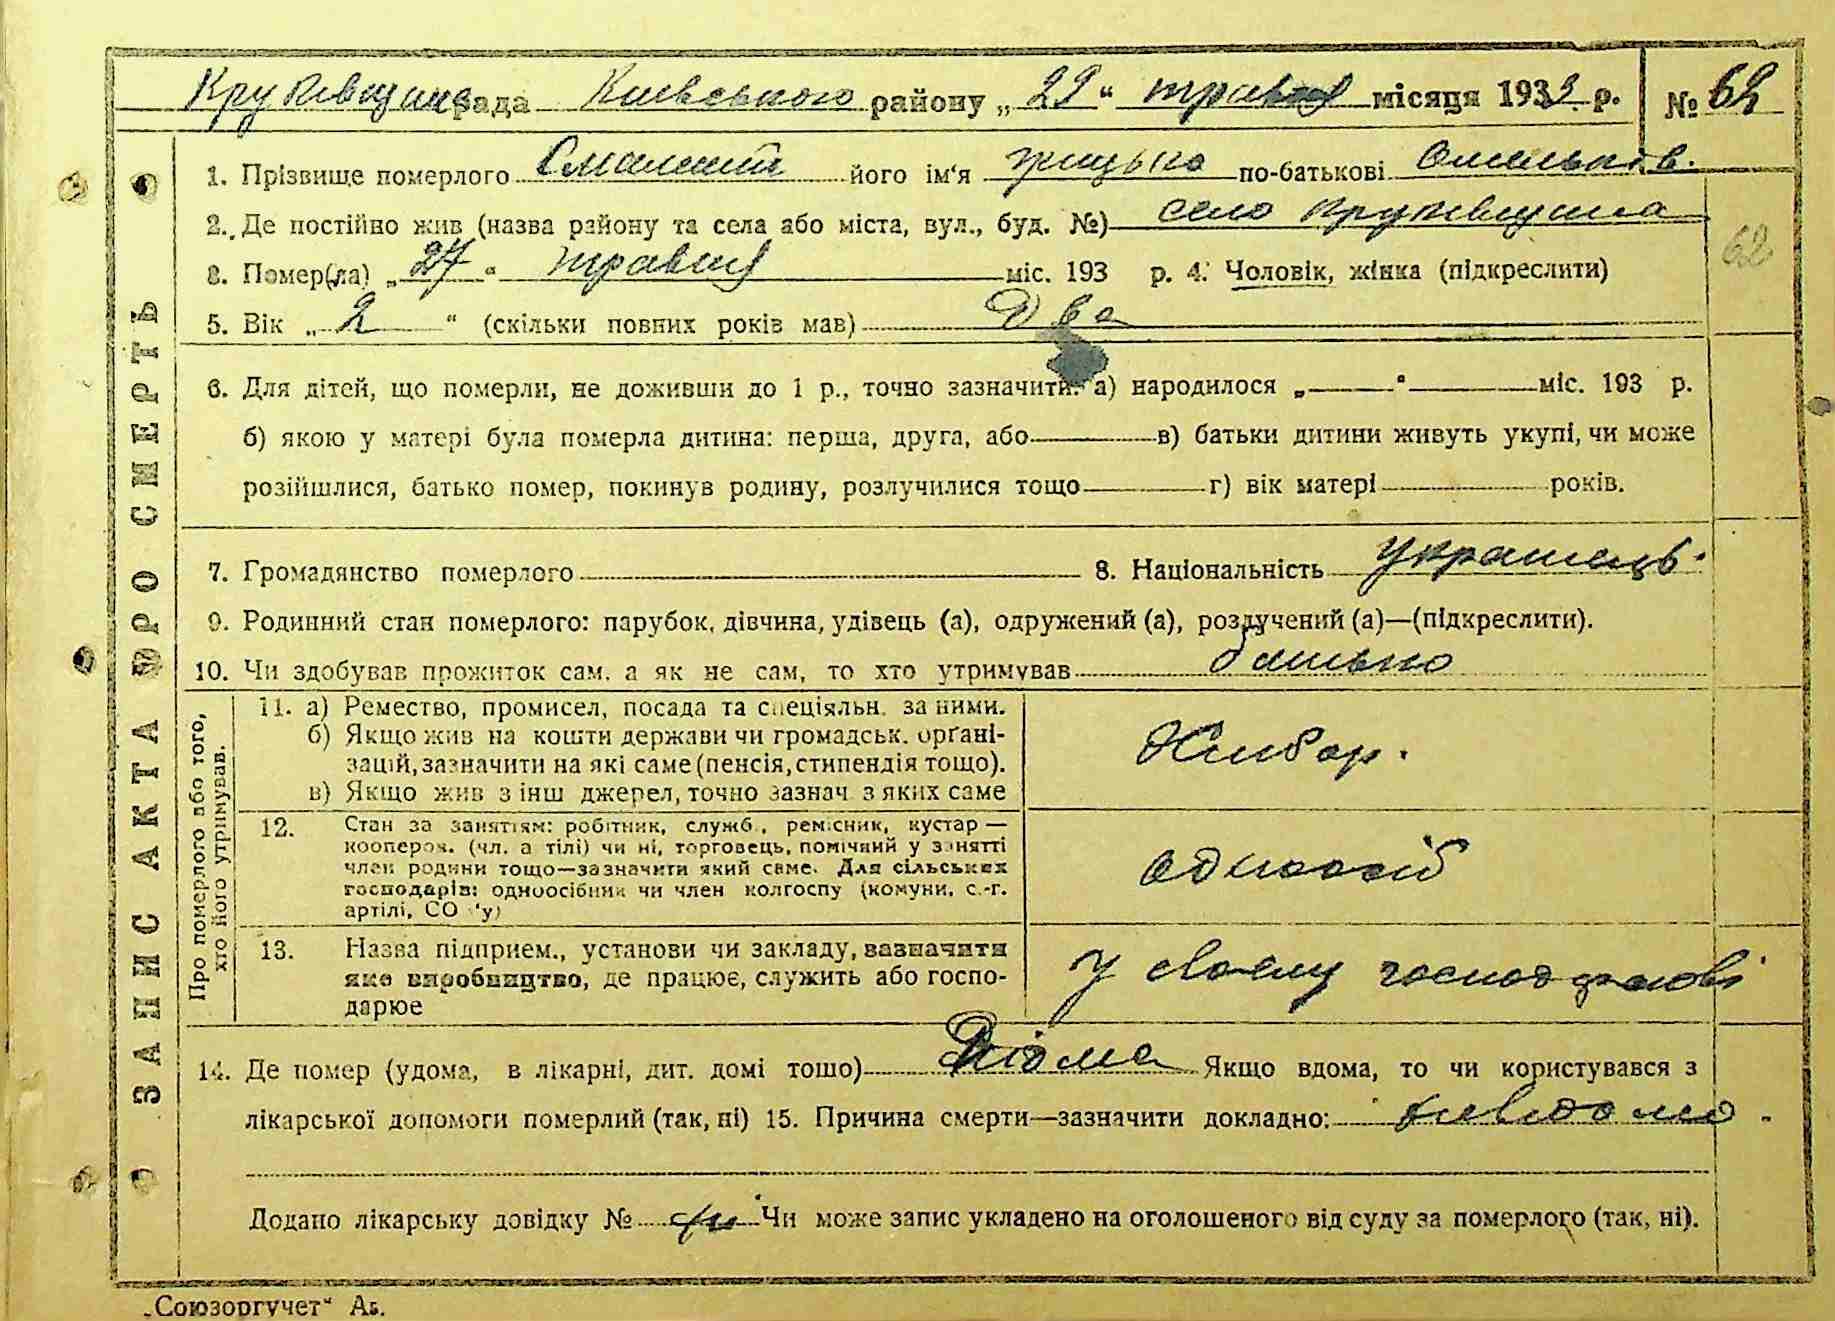 Рада Київського району „29“ травня місяця 1933 р. № 62
1. Прізвище померлого його ім'я по-батькові Омельків.
2. Де постійно жив (назва району та села або міста, вул., буд. №) село
62
3. Помер(ла) „27“ травня міс. 193 р. 4. Чоловік, жінка (підкреслити)
5. Вік „2“ (скільки повних років мав) Два
6. Для дітей, що померли, не доживши до 1 р., точно зазначити: а) народилося „ “ міс. 193 р.
б) якою у матері була померла дитина: перша, друга, або в) батьки дитини живуть укупі, чи може
розійшлися, батько помер, покинув родину, розлучилися тощо г) вік матері років.
7. Громадянство померлого 8. Національність Українець.
9. Родинний стан померлого: парубок, дівчина, удівець (а), одружений (а), розлучений (а)—(підкреслити).
10. Чи здобував прожиток сам, а як не сам, то хто утримував батько
ЗАПИС АКТА ПРО СМЕРТЬ
Про померлого або того,
хто його утримував.
11. а) Ремество, промисел, посада та спеціяльн. за ними.
б) Якщо жив на кошти держави чи громадськ. орґані-
зацій, зазначити на які саме (пенсія, стипендія тощо).
в) Якщо жив з інш джерел, точно зазнач. з яких саме
Хлібор.
12. Стан за заняттям: робітник, служб., ремісник, кустар —
кооперов. (чл. а тілі) чи ні, торговець, помічний у занятті
член родини тощо—зазначити який саме. Для сільських
господарів: одноосібник чи член колгоспу (комуни, с.-г.
артілі, СО 'у)
одноосіб
13. Назва підприєм., установи чи закладу, зазначити
яке виробництво, де працює, служить або госпо-
дарює
У своєму господарстві
14. Де помер (удома, в лікарні, дит. домі тощо) Дома Якщо вдома, то чи користувався з
лікарської допомоги померлий (так, ні) 15. Причина смерти—зазначити докладно: невідомо.
Додано лікарську довідку № Чи може запис укладено на оголошеного від суду за померлого (так, ні).
„Союзоргучет“ А5.